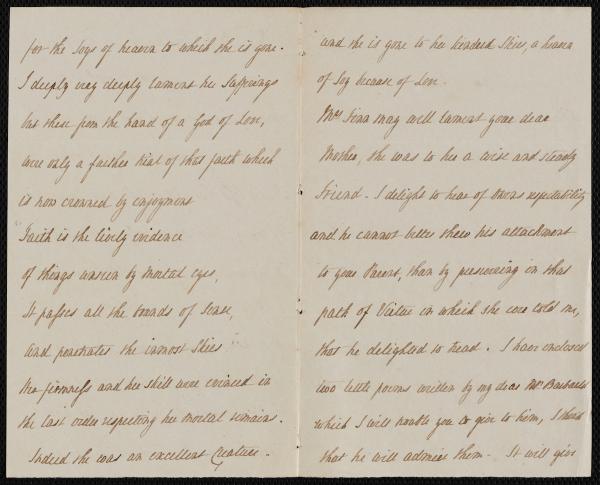 for the Joys of heaven to which she is gone.
I deeply very deeply lament her Sufferings
but these from the hand of a God of Love,
were only a farther trial of that faith which
is now crowned by enjoyment
Faith is the lively evidence
of things unseen by mortal eyes,
It passes all the bounds of Sense,
and penetrates the inmost Skies
Her firmness and her skill were evinced in
the last order respecting her mortal remains.
Indeed she was an excellent Creature.
and she is gone to her kindred Skies, a heaven
of Joy because of Love.
Mrs may well lament your dear
Mother, she was to her a wise and steady
Friend. I delight to hear of respectability
and he cannot better shew his attachment
to your Parent, than by persevering in that
path of Virtue in which she once told me,
that he delighted to tread. I have enclosed
two little poems written by my dear Mrs Barbauld
which I will trouble you to give to him, I think
that he will admire them. It will give